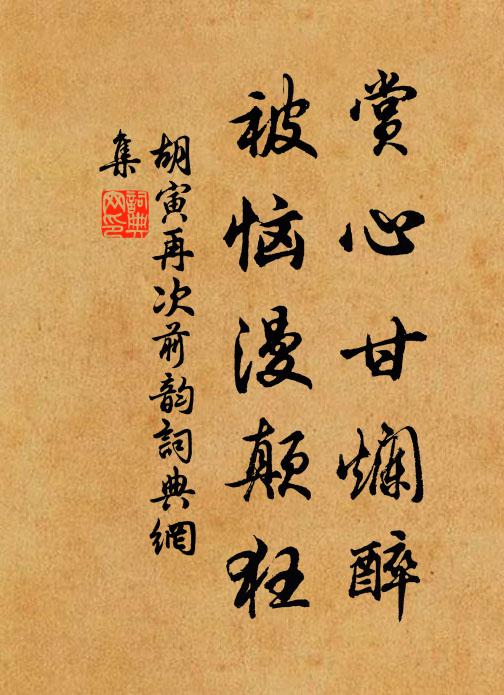 赏心甘烂醉
被恼漫颠狂
胡寅再次前韵詞典網
集
詞典网印